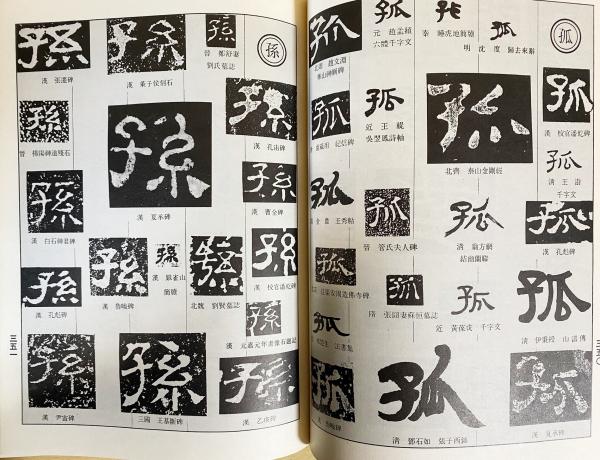 孤
元 趙孟頫
六體千字文
秦 睡虎地簡牘
明 沈度 歸去來辭
北周 趙文淵
華山神廟碑
漢 校官潘乾碑
近 王禔
吳翌鳳詩軸
北齊 泰山金剛經
清 王澍
千字文
漢 孔彪碑
清 翁方綱
晉 管氏夫人碑
隋 張囧妻蘇恒墓誌
近 黃葆戉 千字文
清 伊秉綬
漢 魯峻碑
清 鄧石如 張子西銘
漢 夏承碑
三五〇
孫
晉 鄭舒妻
劉氏墓誌
漢 萊子侯刻石
漢 張遷碑
漢 孔宙碑
漢 夏承碑
晉 楊陽神道殘石
漢 曹全碑
漢 白石神君碑
漢 校官潘乾碑
北魏 劉賢墓誌
漢 銀雀山
簡牘
漢 魯峻碑
漢 孔彪碑
漢 元嘉元年畫像石題記
漢 乙瑛碑
三國 王基斷碑
漢 尹宙碑
三五一